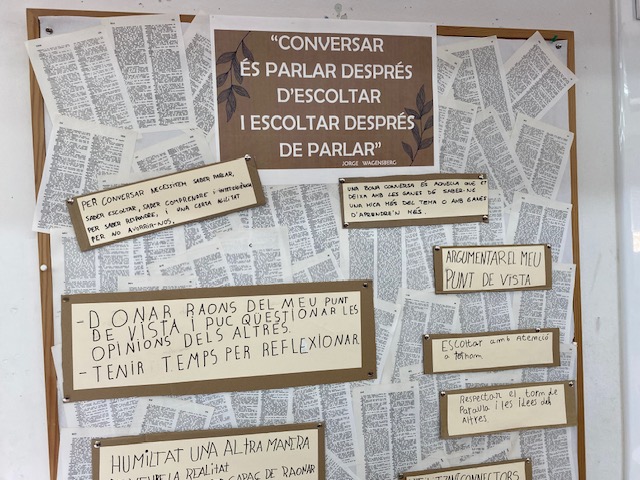 “CONVERSAR
ÉS PARLAR DESPRÉS
D’ESCOLTAR
I ESCOLTAR DESPRÉS
DE PARLAR”
JORGE WAGENSBERG
PER CONVERSAR NECESSITEM SABER PARLAR,
SABER ESCOLTAR, SABER COMPRENDRE I INTEL·LIGÈNCIA
PER SABER RESPONDRE, I UNA CERTA AGILITAT
PER NO AVORRIR-NOS.
UNA BONA CONVERSA ÉS AQUELLA QUE ET
DEIXA AMB LES GANES DE SABER-NE
UNA MICA MÉS DEL TEMA O AMB GANES
D'APRENDRE'N MÉS.
ARGUMENTAR EL MEU
PUNT DE VISTA
- DONAR RAONS DEL MEU PUNT
DE VISTA I PUC QÜESTIONAR LES
OPINIONS DELS ALTRES.
- TENIR TEMPS PER REFLEXIONAR
Escoltar amb atenció
a tothom
Respectar el torn de
Paraula i les idees dels
Altres
HUMILTAT UNA ALTRA MANERA
LA REALITAT
CAPAÇ DE RAONAR
CONNECTORS